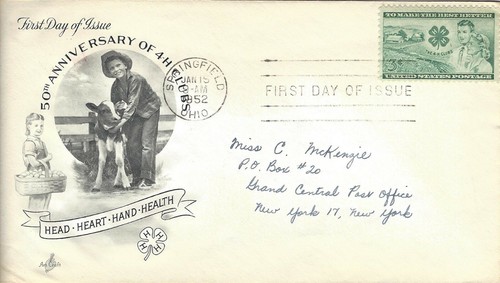 First Day of Issue
50TH ANNIVERSARY OF 4H CLUBS
HEAD · HEART · HAND · HEALTH
H H H H
Art Craft
SPRINGFIELD
JAN 15
-AM
1952
OHIO
FIRST DAY OF ISSUE
TO MAKE THE BEST BETTER
H H H H
4-H CLUBS
3¢
UNITED STATES POSTAGE
Miss C. McKenzie
P.O. Box #20
Grand Central Post Office
New York 17, New York